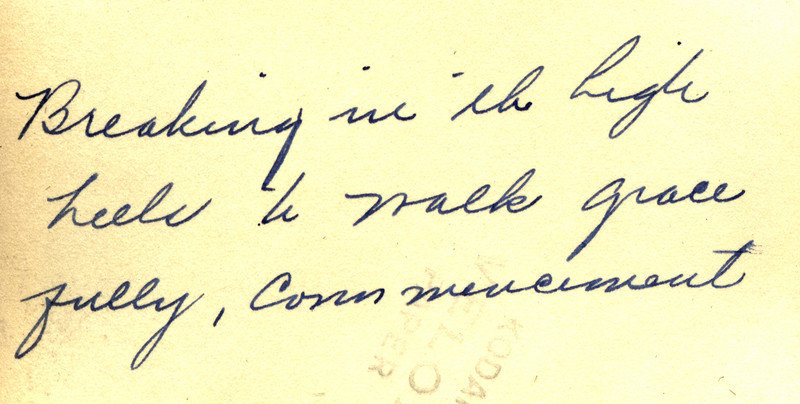 Breaking in the high
heels to walk grace
fully, Commencement
VELOX
KODAK
PAPER